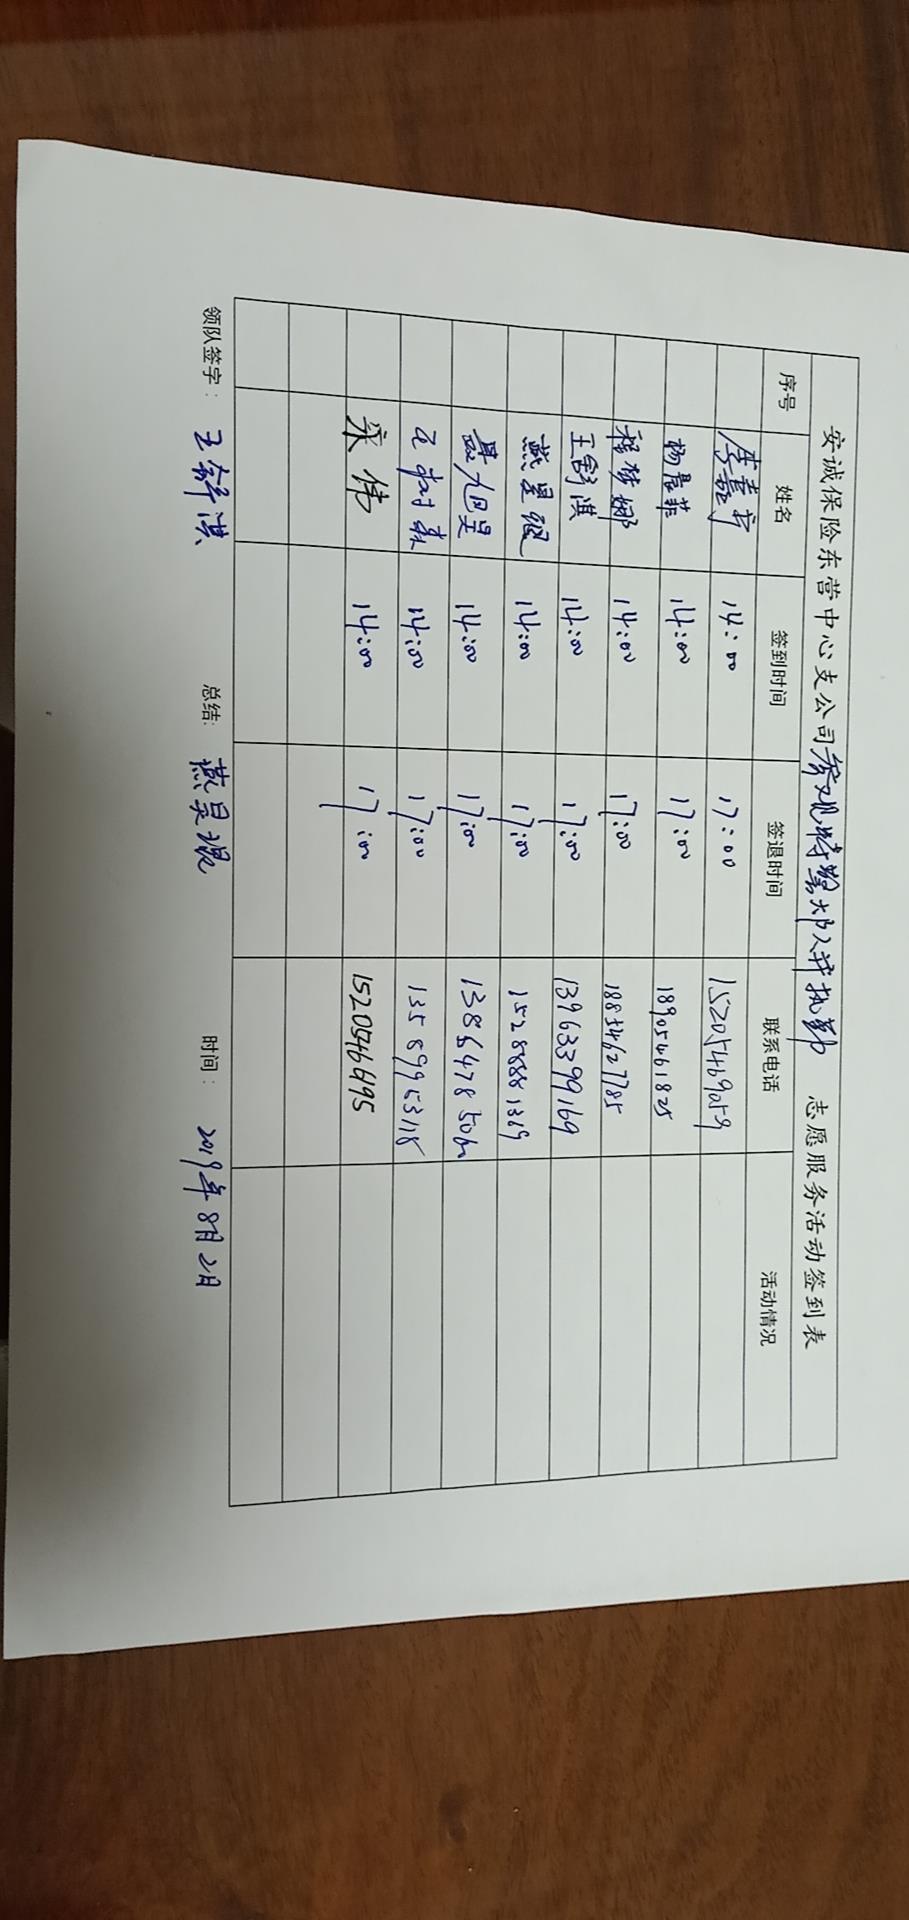 安诚保险东营中心支公司参观特警部队并执勤 志愿服务活动签到表
序号 姓名 签到时间 签退时间 联系电话 活动情况
14:00 17:00 15205469059
杨晨菲 14:00 17:00 18905461825
程梦娜 14:00 17:00 18854627785
王舒淇 14:00 17:00 13963399169
燕昊琨 14:00 17:00 15288881369
聂旭昊 14:00 17:00
14:00 17:00 13589953118
宋伟 14:00 17:00 15205466195
领队签字: 王舒淇 总结: 燕昊琨 时间: 2019年8月2日